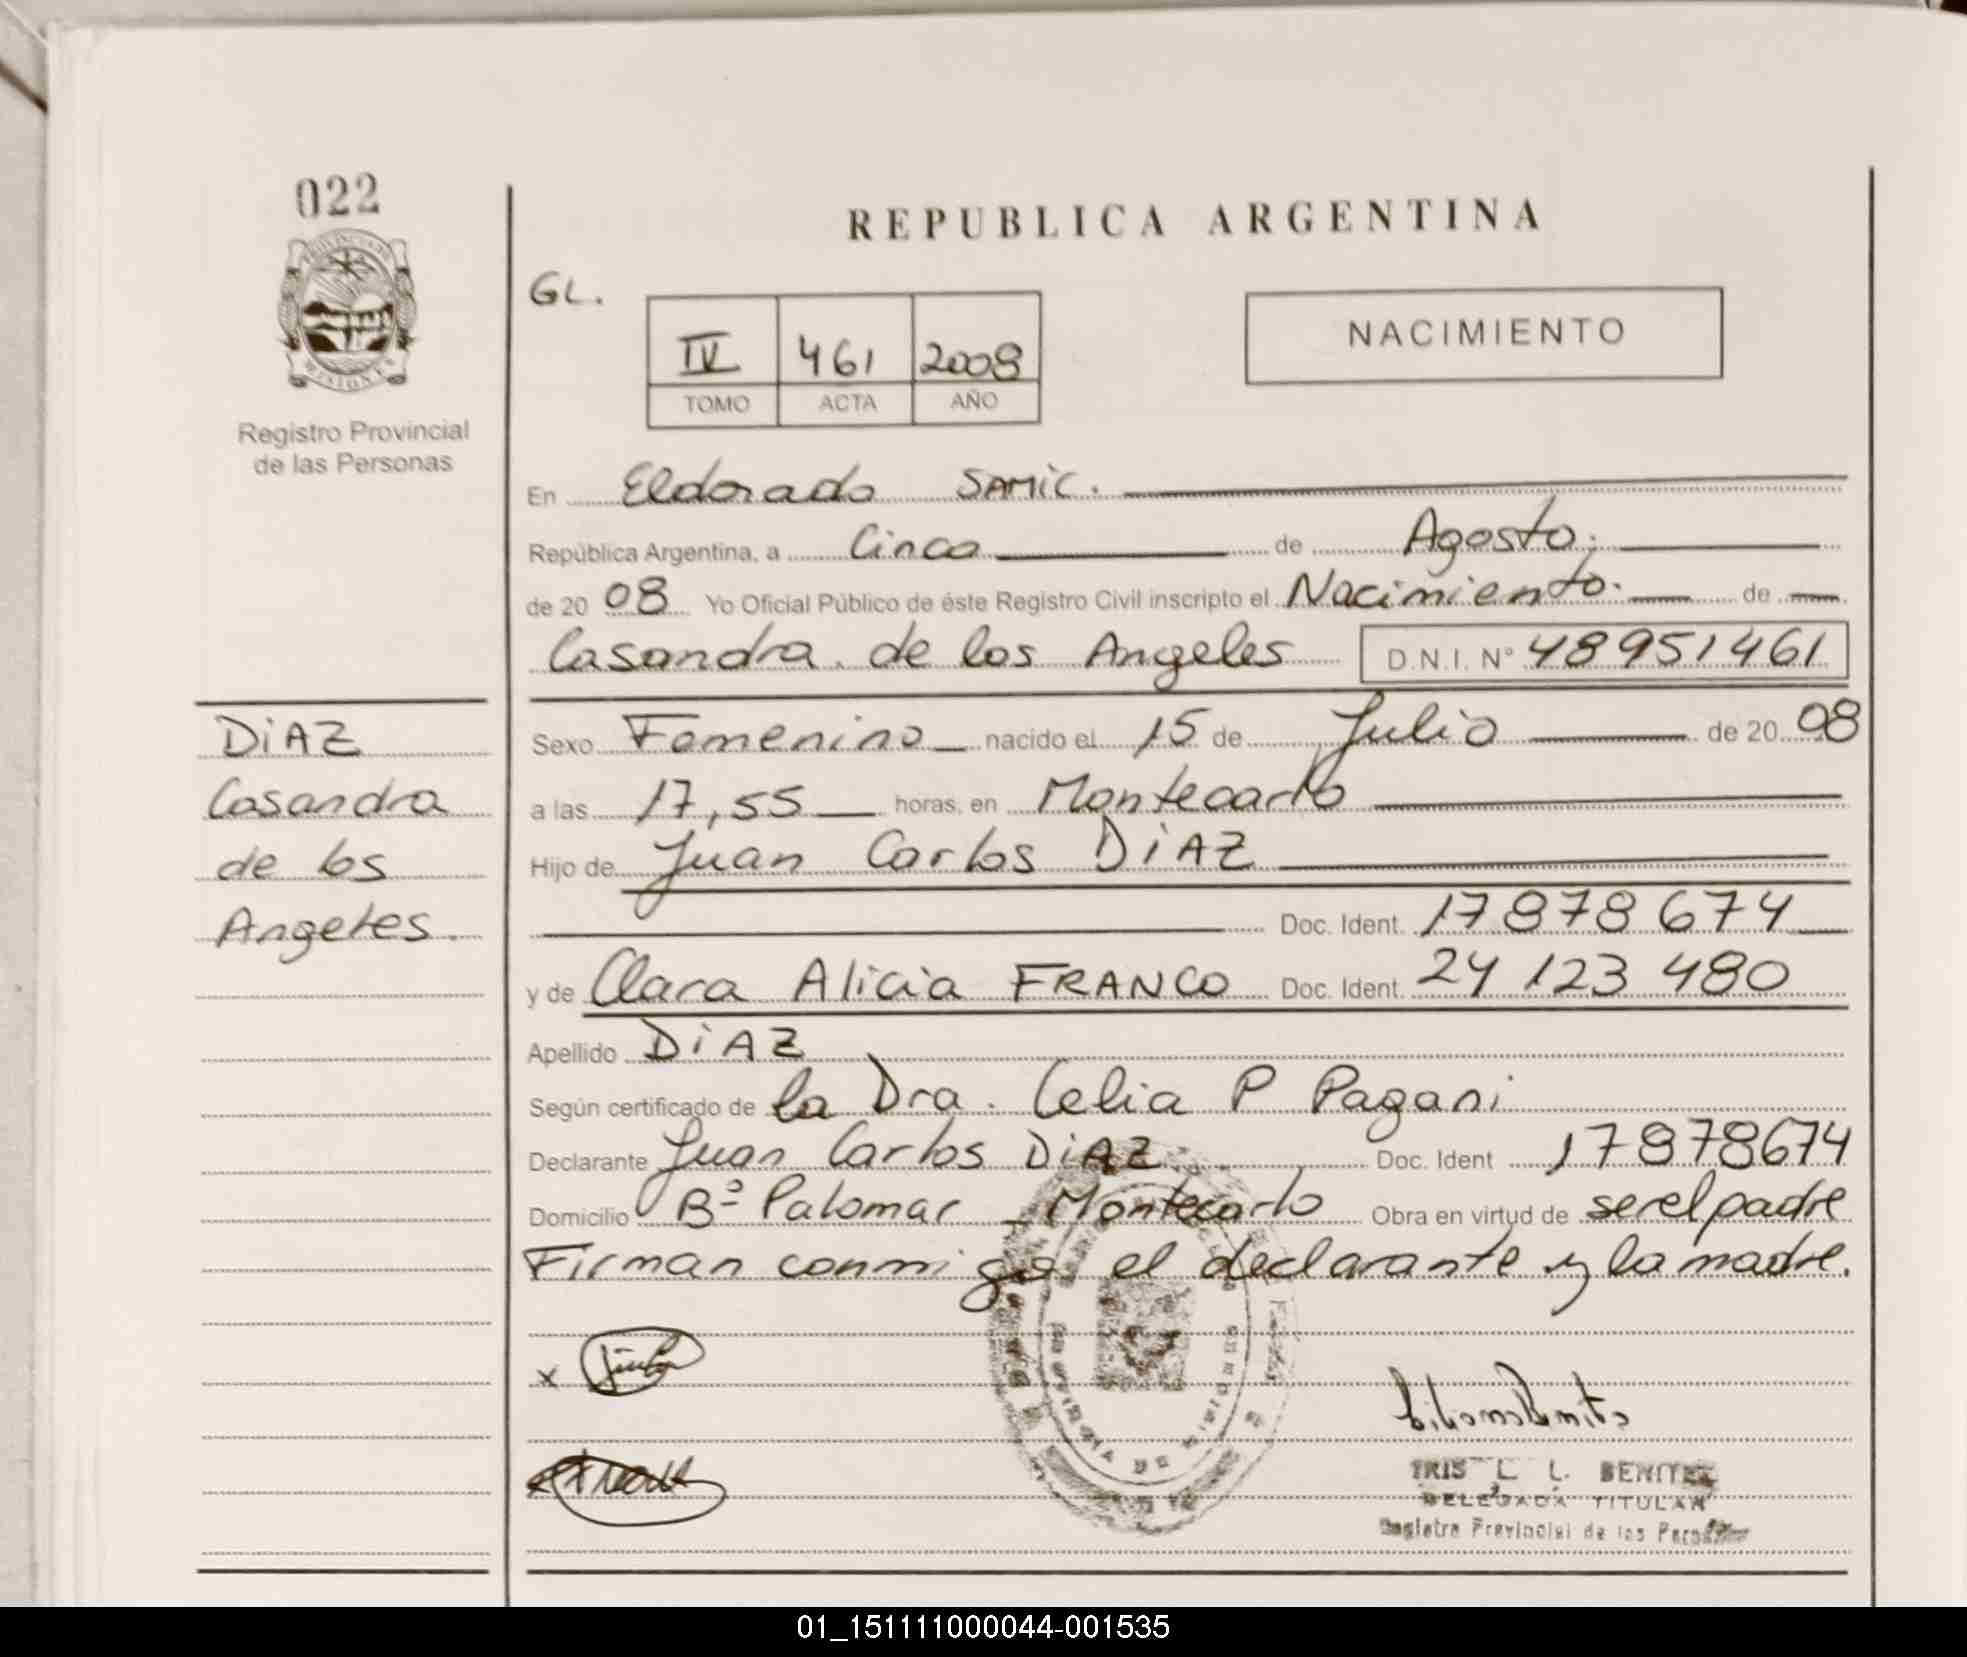 022
REPUBLICA ARGENTINA
GL.
NACIMIENTO
IV 461 2008
TOMO ACTA AÑO
Registro Provincial
de las Personas
En Eldorado SAMIC.
República Argentina, a Cinco de Agosto.
de 20 08 Yo Oficial Público de éste Registro Civil inscripto el Nacimiento. de
Casandra de los Angeles D.N.I. Nº 48951461
DiAZ
Casandra
de los
Angeles.
Sexo Femenino nacido el 15 de Julio de 20 08
a las 17,55 horas, en Montecarlo
Hijo de Juan Carlos DiAZ
Doc. Ident. 17878674
y de Clara Alicia FRANCO Doc. Ident. 24 123 480
Apellido DiAZ
Según certificado de la Dra. Celia P Pagani
Declarante Juan Carlos DiAZ Doc. Ident 17878674
Domicilio Bº Palomar - Montecarlo Obra en virtud de ser el padre
Firman conmigo el declarante y la madre.
x
IRIS L. BENITEZ
DELEGADA TITULAR
Registro Provincial de las Personas
01_151111000044-001535